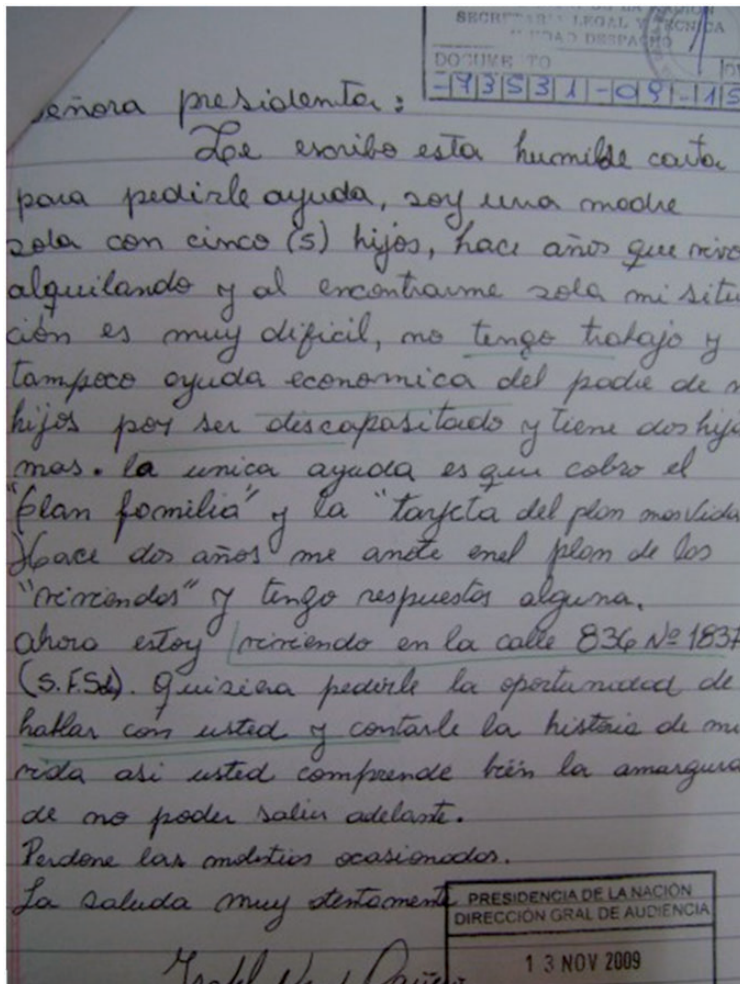 DE LA NACION
SECRETARIA LEGAL Y TECNICA
DESPACHO
DOCUME TO
-93531-09-15
eñora presidenta:
Le escribo esta humilde carta
para pedirle ayuda, soy una madre
sola con cinco (5) hijos, hace años que vivo
alquilando y al encontrarme sola mi situ
ción es muy dificil, no tengo trabajo y
tampoco ayuda economica del padre de m
hijos por ser discapasitado y tiene dos hijo
mas. la unica ayuda es que cobro el
"plan familia" y la "tarjeta del plan mas vida
Hace dos años me anote enel plan de las
"viviendas" y tengo respuestas alguna.
ahora estoy viviendo en la calle 836 Nº 1837
(S.F.S). Quisiera pedirle la oportunidad de
hablar con usted y contarle la historia de mi
vida asi usted comprende bién la amargura
de no poder salir adelante.
Perdone las molestias ocasionadas.
La saluda muy atentamente
PRESIDENCIA DE LA NACIÓN
DIRECCIÓN GRAL DE AUDIENCIA
13 NOV 2009